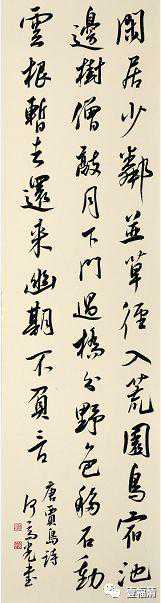 閑居少鄰並草徑入荒園鳥宿池
邊樹僧敲月下門過橋分野色移石動
雲根暫去還来幽期不負言
唐賈島詩
書
壹福清